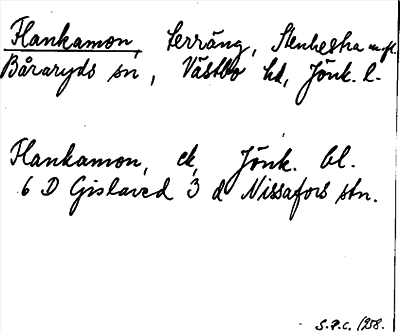 Flankamon, terräng, Stenhestra m.fl.
Båraryds sn, Västbo hd, Jönk. l.
Flankamon, ek, Jönk. bl.
6 D Gislaved 3 d Nissafors stn.
S.P.C. 1258.